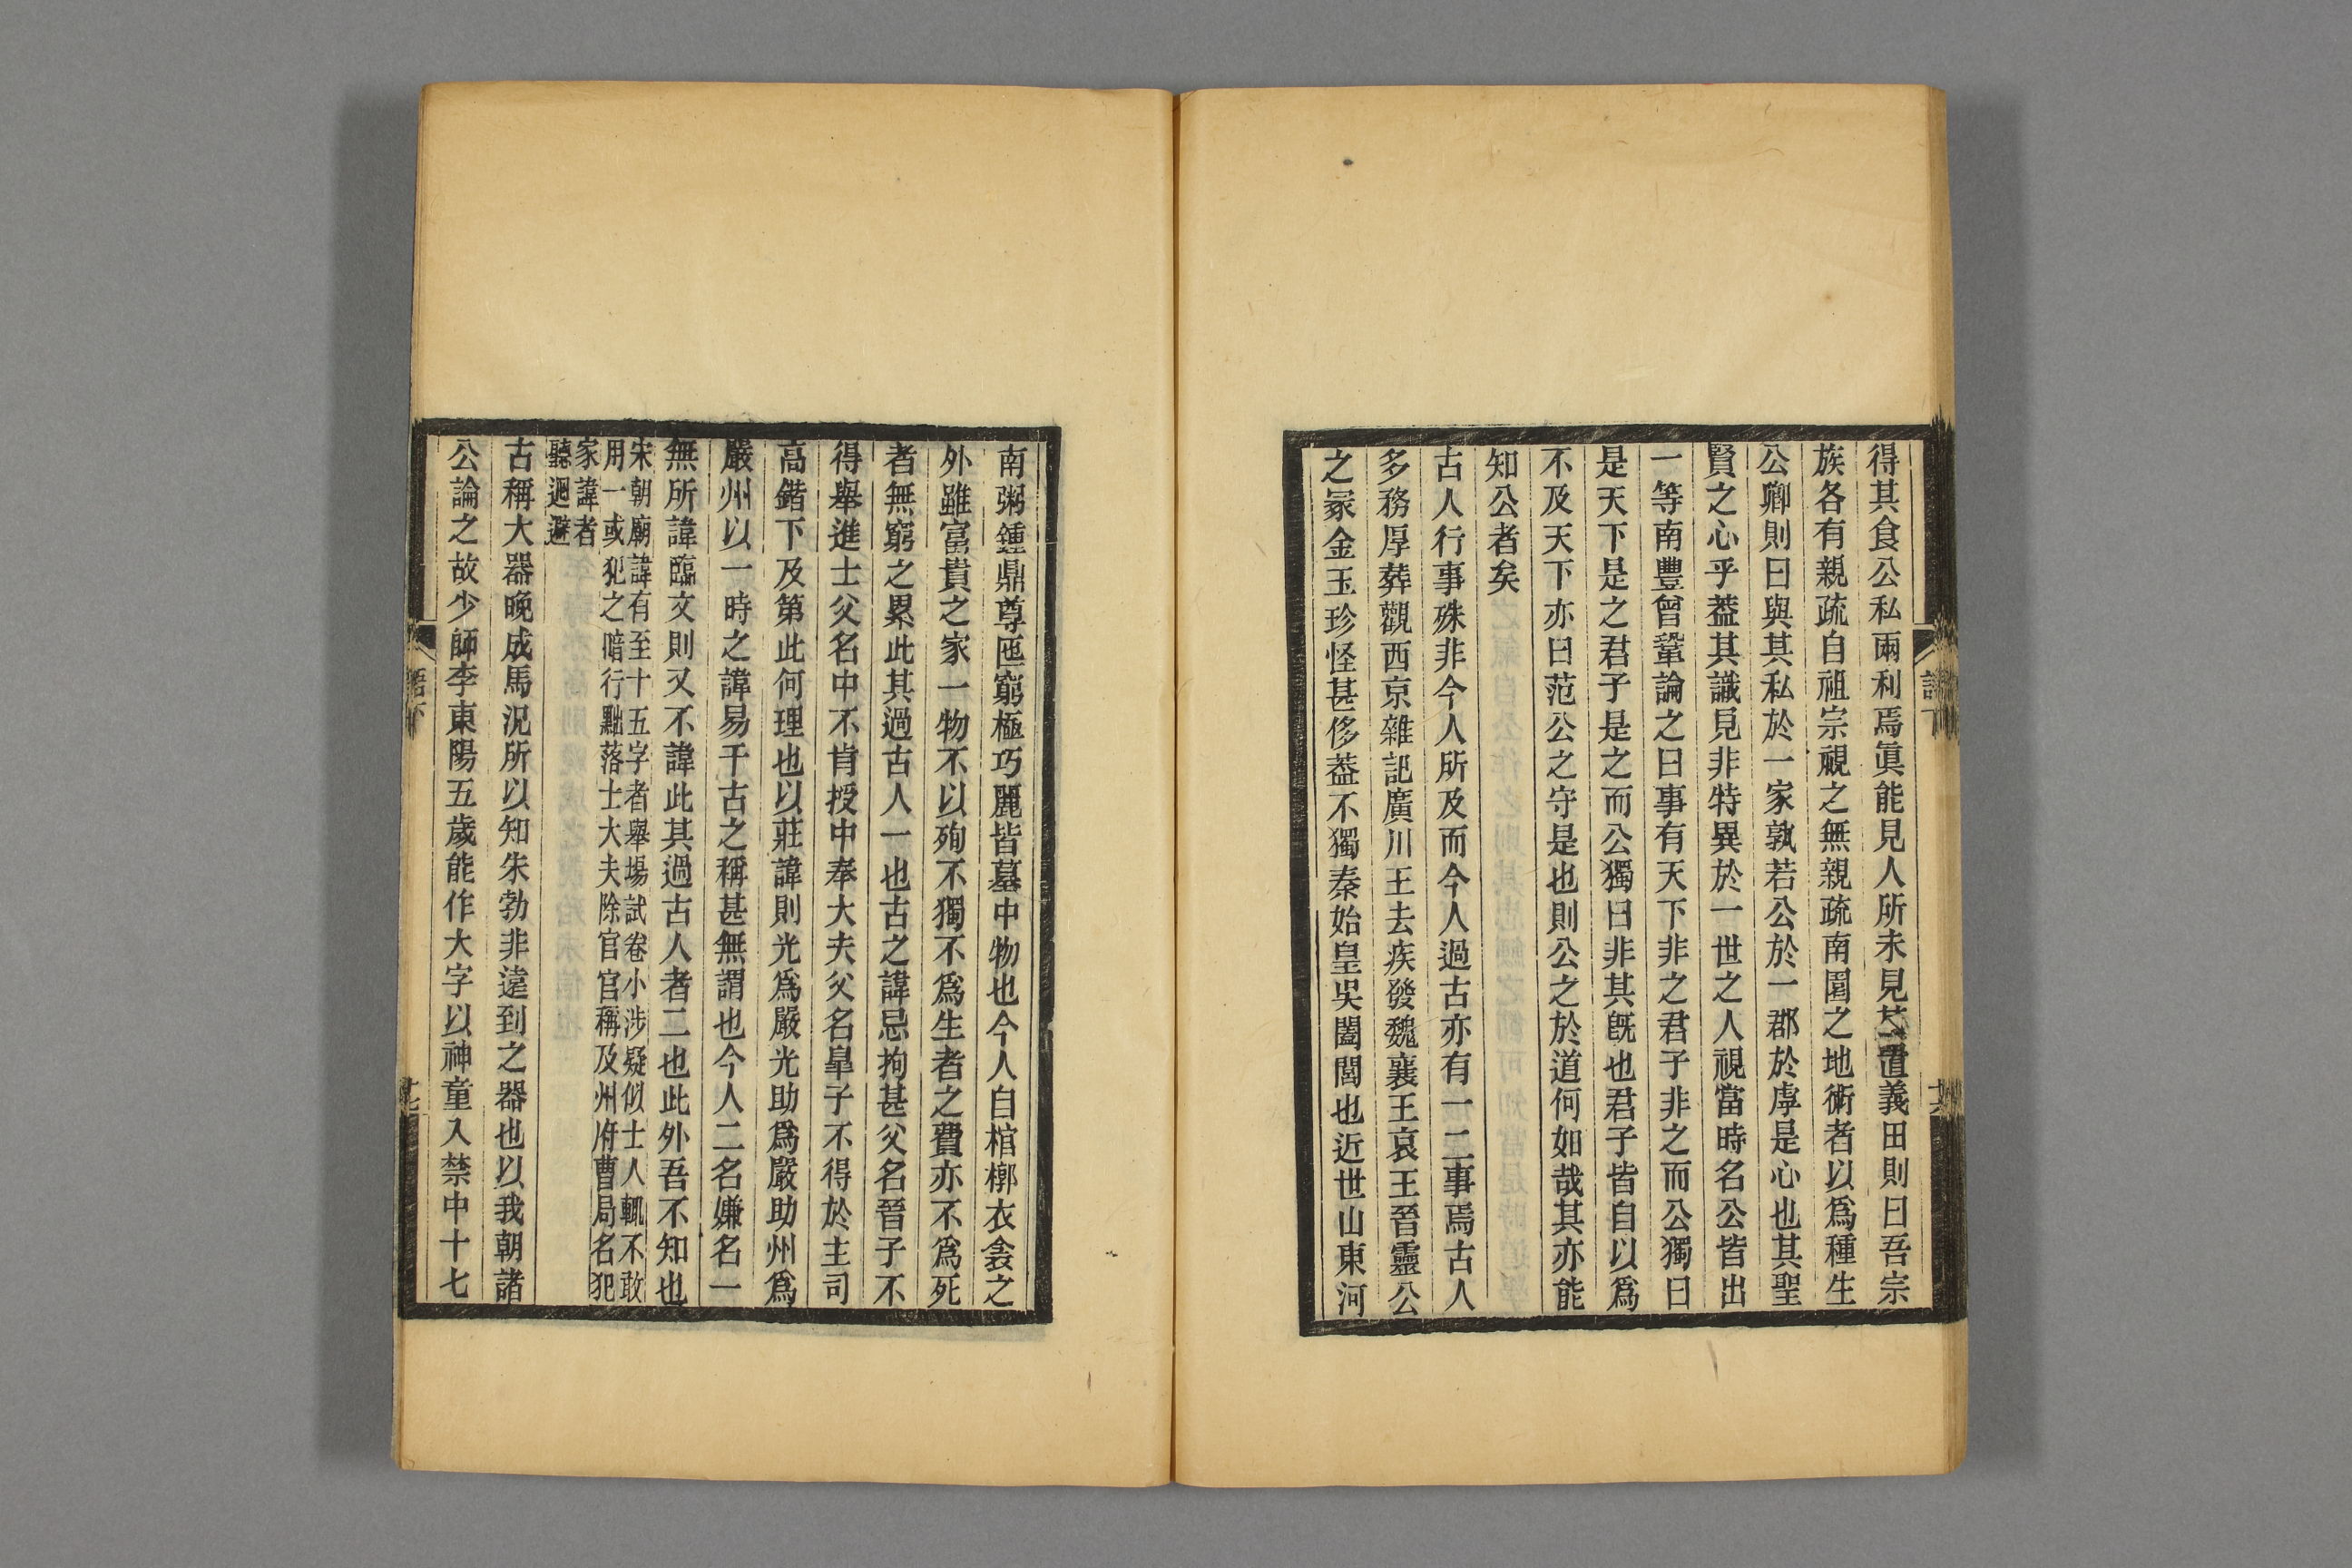 得其食公私兩利焉眞能見人所未見其置義田則曰吾宗
族各有親疏自祖宗視之無親疏南園之地術者以爲種生
公卿則曰與其私於一家孰若公於一郡於虖是心也其聖
賢之心乎葢其識見非特異於一世之人視當時名公皆出
一等南豐曾鞏論之曰事有天下非之君子非之而公獨曰
是天下是之君子是之而公獨曰非其旣也君子皆自以爲
不及天下亦曰范公之守是也則公之於道何如哉其亦能
知公者矣
古人行事殊非今人所及而今人過古亦有一二事焉古人
多務厚葬觀西京雜記廣川王去疾發魏襄王哀王晉靈公
之冢金玉珍怪甚侈葢不獨秦始皇吳闔閭也近世山東河
語下
十六
南粥鍾鼎尊匜窮極巧麗皆墓中物也今人自棺槨衣衾之
外雖富貴之家一物不以殉不獨不爲生者之費亦不爲死
者無窮之累此其過古人一也古之諱忌拘甚父名晉子不
得舉進士父名中不肯授中奉大夫父名皐子不得於主司
高鍇下及第此何理也以莊諱則光爲嚴光助爲嚴助州爲
嚴州以一時之諱易千古之稱甚無謂也今人二名嫌名一
無所諱臨文則又不諱此其過古人者二也此外吾不知也
宋朝廟諱有至十五字者舉塲試卷小涉疑似士人輒不敢
用一或犯之暗行黜落士大夫除官官稱及州府曹局名犯
家諱者
聽迴避
古稱大器晚成馬況所以知朱勃非遠到之器也以我朝諸
公論之故少師李東陽五歲能作大字以神童入禁中十七
語下
十七